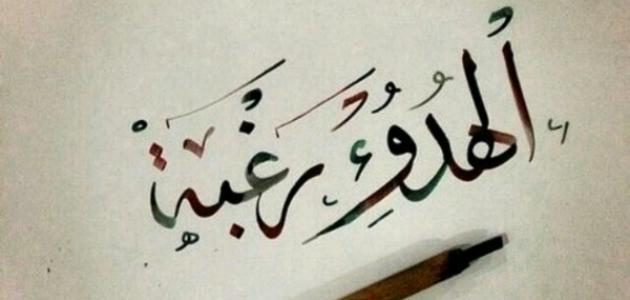 ألهُدُوُءِ رَغْبَةْ